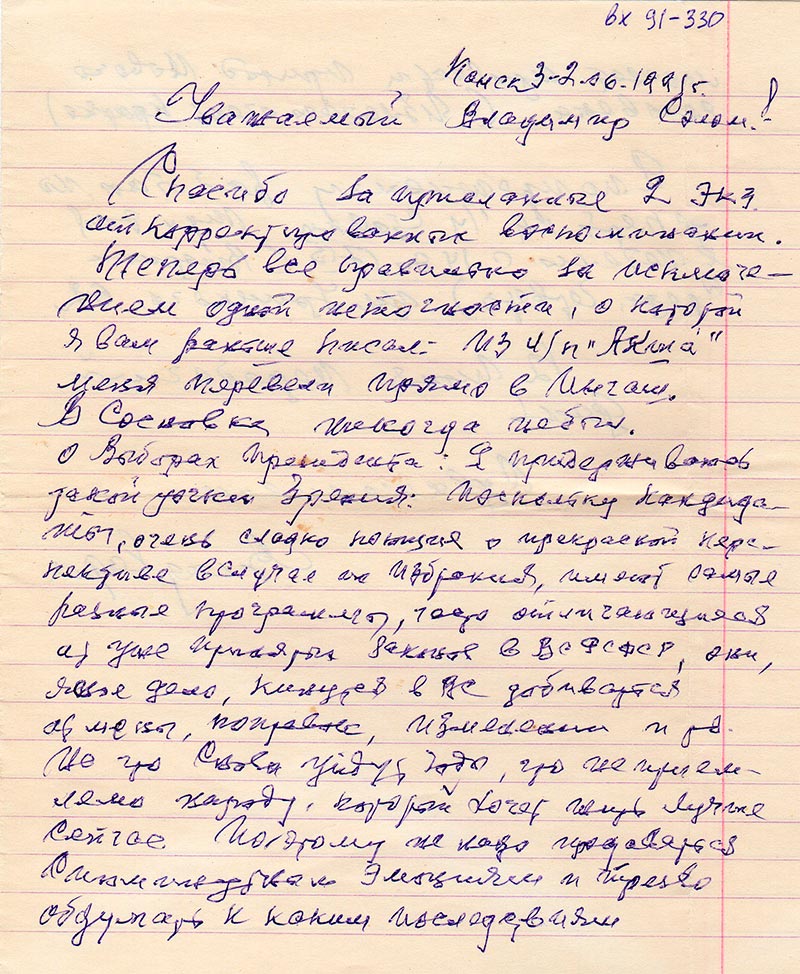 вх 91-330
Канск 3-2-06-1991г.
Уважаемый Владимир Салом.!
Спасибо за присланные 2 экз.
откорректированных воспоминаний.
Теперь все правильно за исключе-
нием одной неточности, о которой
я вам раньше писал: из ч/п "Акша"
меня перевели прямо в Ингаш.
В Сосновке никогда не был.
О выборах президента: Я придерживаюсь
такой точки зрения: поскольку кандида-
ты, очень сладко поющие о прекрасной перс-
пективе в случае их избрания, имеют самые
разные программы, часто отличающиеся
от уже принятых законов в ВС РСФСР, они,
ясное дело, кинутся в ВС добиваться
отмены, поправок, изменений и др.
На это снова уйдут годы, что неприем-
лемо народу, который хочет жить лучше
сейчас. Поэтому не надо предаваться
эмоциям и трезво
обдумать к каким последствиям